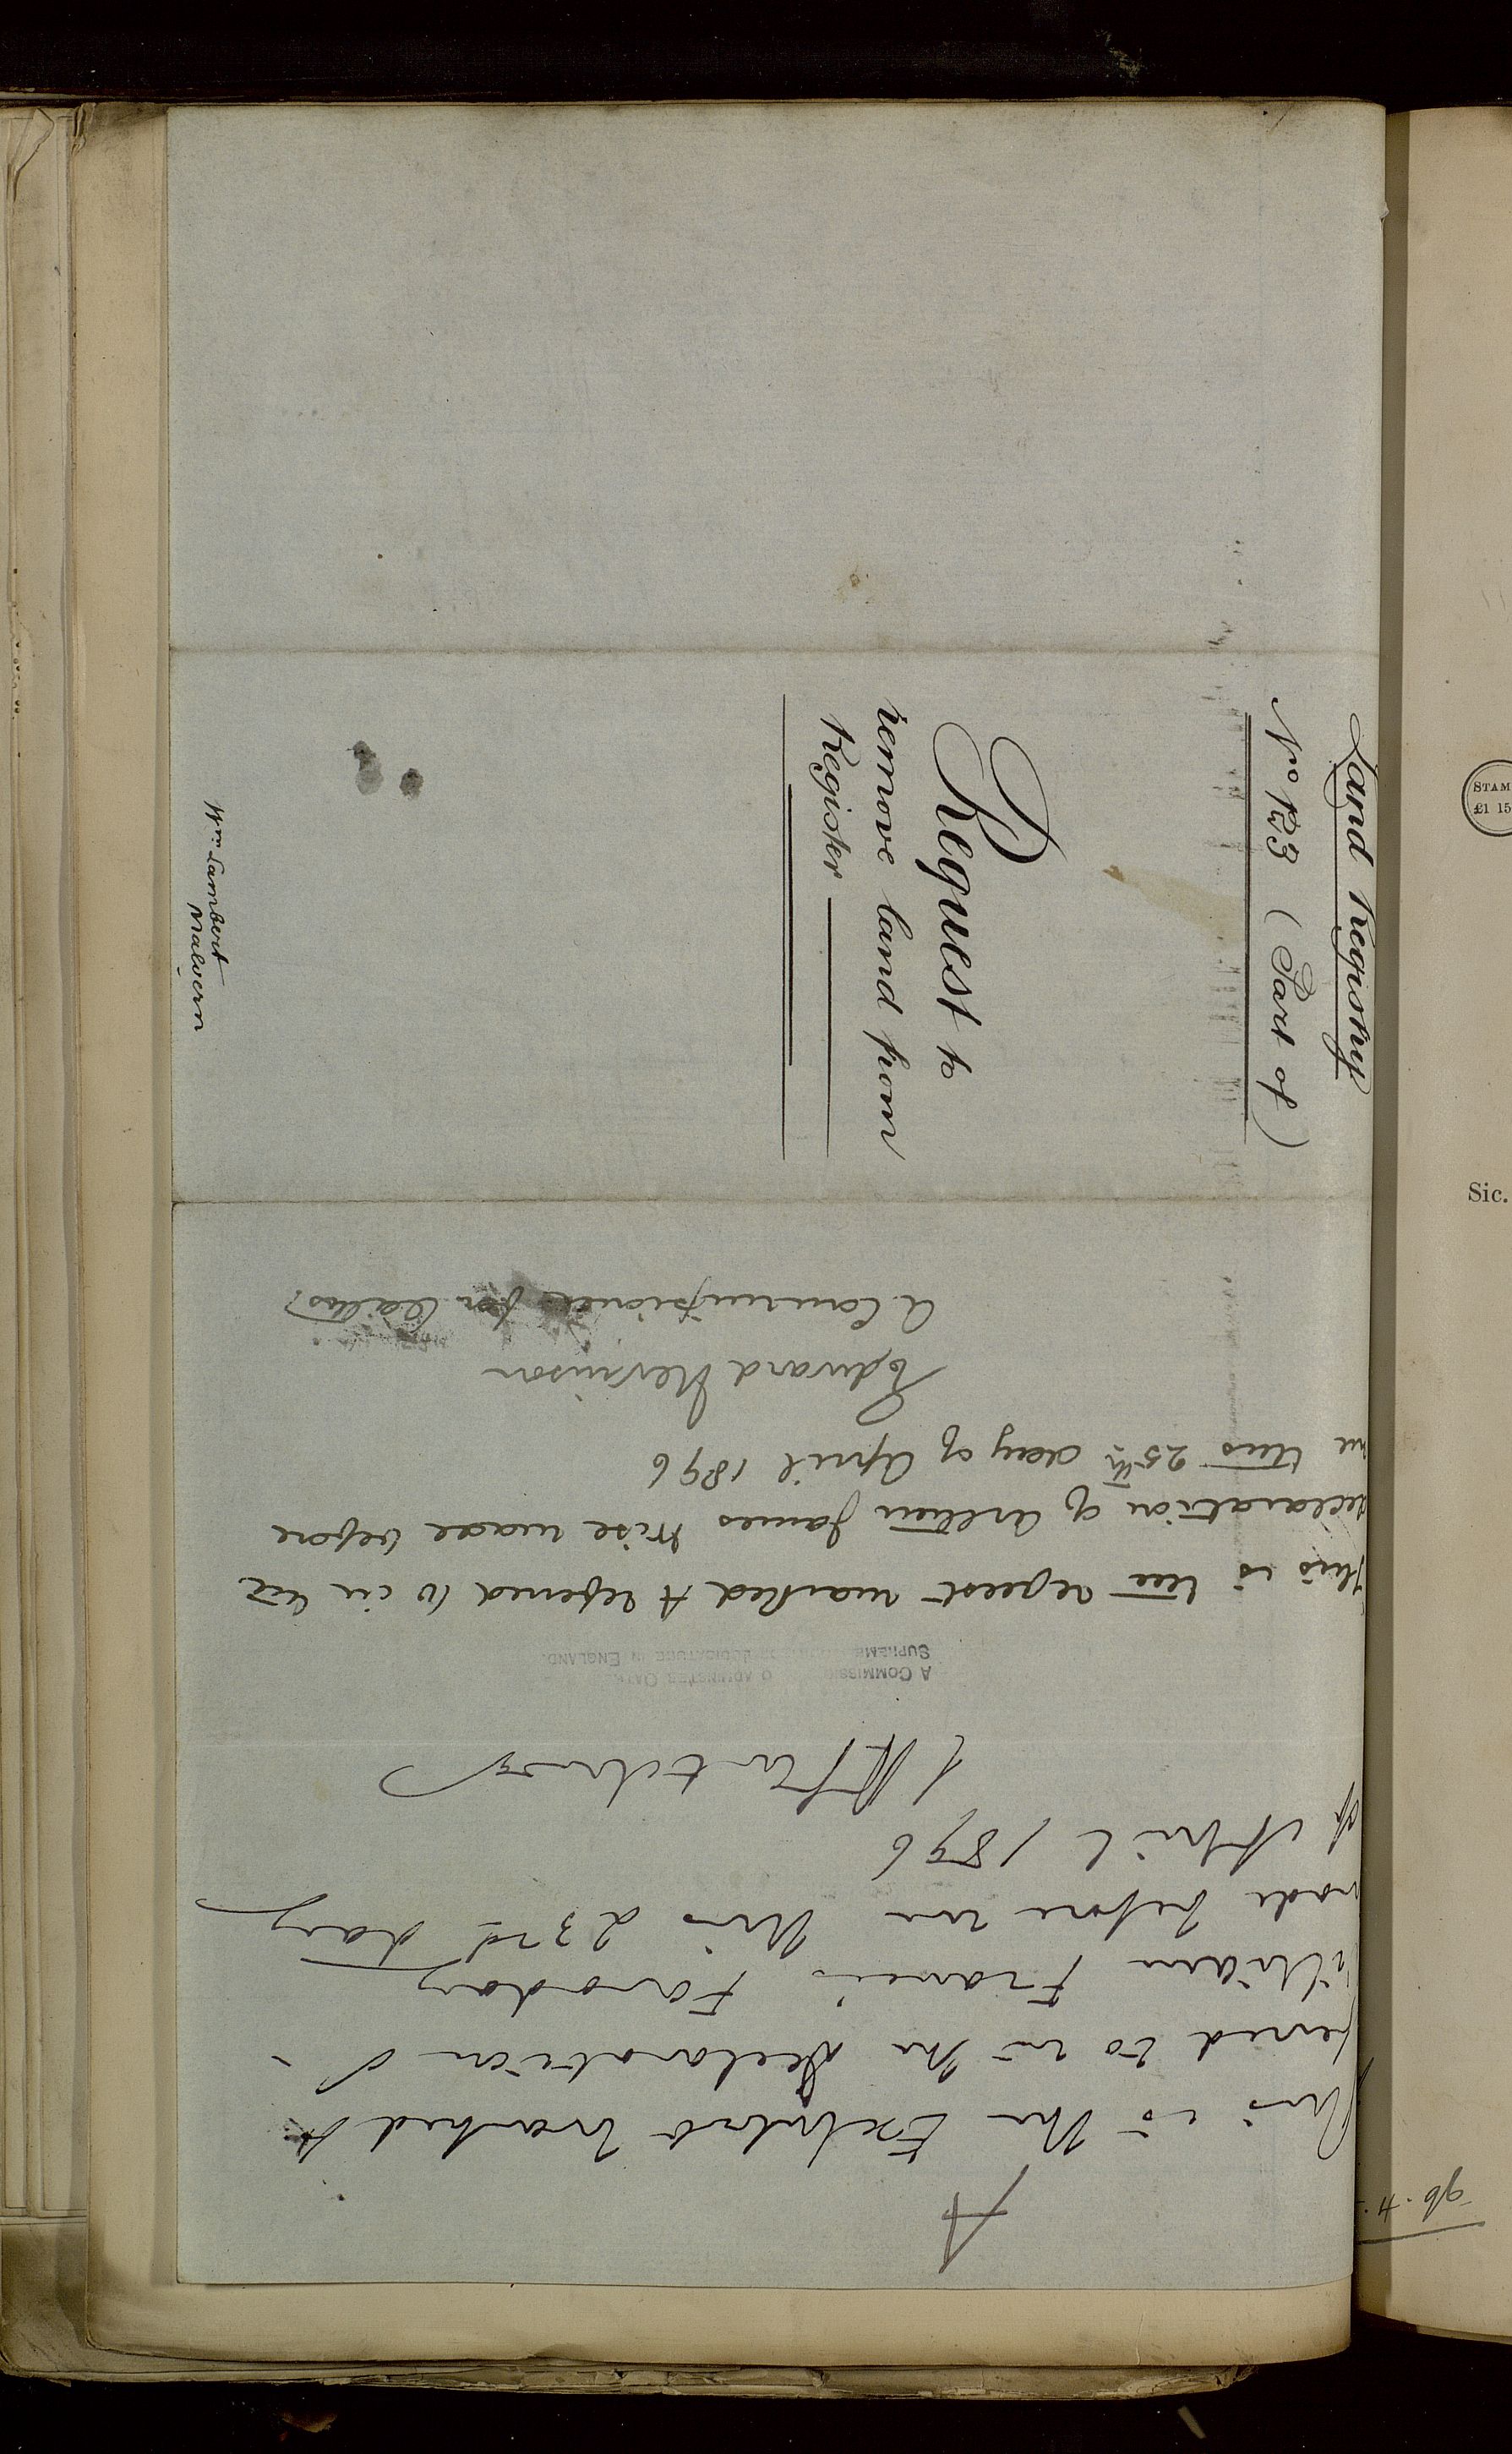 Land Registry
No 123 (Part of)
Request to
remove land from
Register
Wm. Lambert
Malvern
A
This is the Exhibit marked A
referred to in the declaration of
William Francis Faraday
made before me this 23rd day
of April 1896
A COMMISSI O ADMINISTER OATH
SUPREME JUDICATURE IN ENGLAND.
This is the request marked A referred to in the
declaration of James Wise made before
me this 25th day of April 1896
Edward Nevinson
A Commissioner for Oaths
STAM
£1 15
Sic.